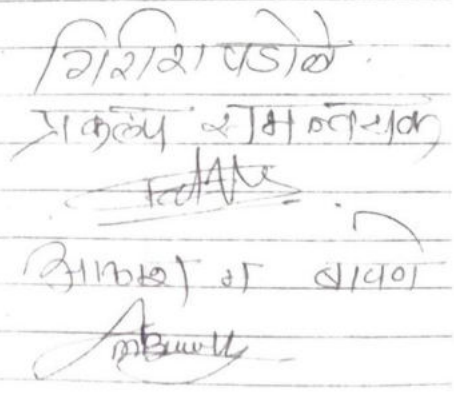 गिरीश पडोळे
प्रकल्प समन्वयक
आकाश म बावणे